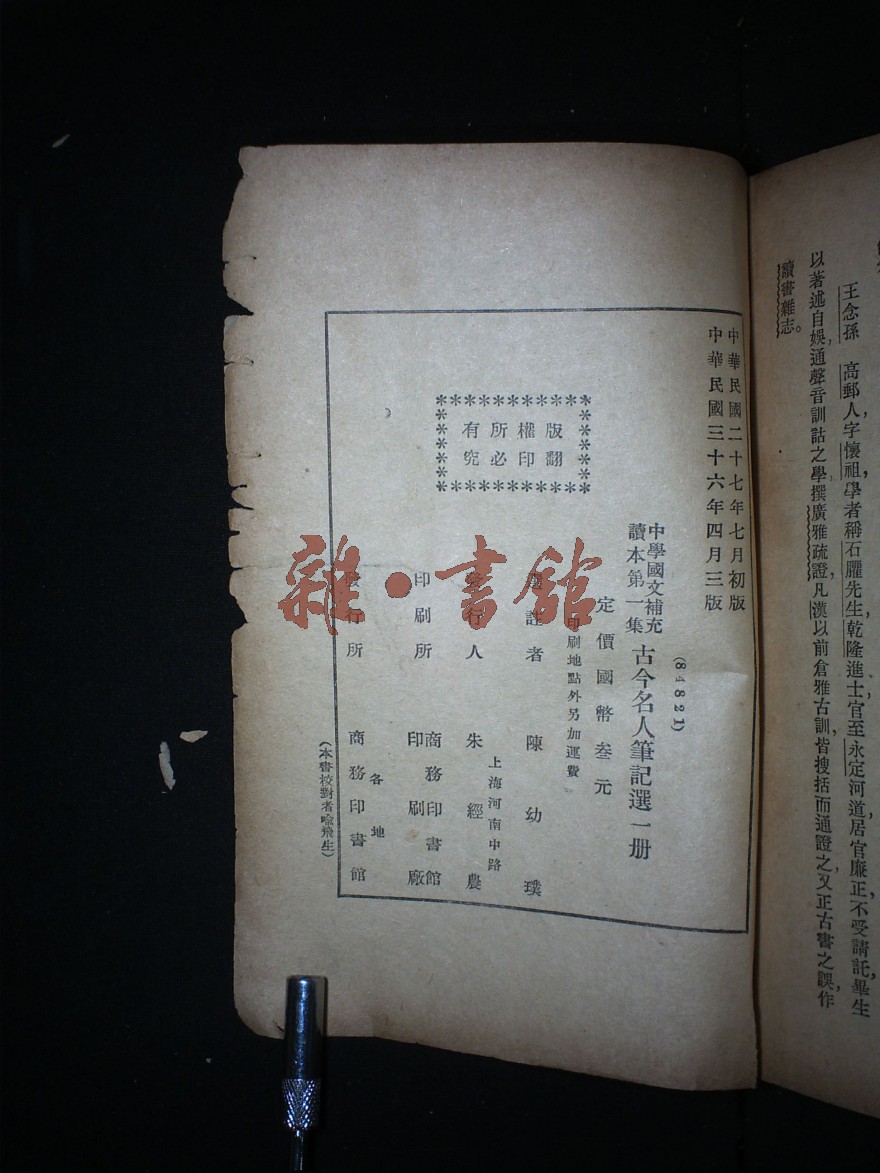 王念孫 高郵人，字懷祖，學者稱石臞先生，乾隆進士，官至永定河道，居官廉正，不受請託，畢生
以著述自娛，通聲音訓詁之學，撰廣雅疏證，凡漢以前倉雅古訓，皆搜括而通證之，又正古書之誤，作
讀書雜志。
中華民國二十七年七月初版
中華民國三十六年四月三版
(84821)
中學國文補充
讀本第一集
古今名人筆記選一册
定價國幣叁元
印刷地點外另加運費
版權所有
翻印必究
選註者 陳幼璞
上海河南中路
發行人 朱經農
印刷所 商務印書館
印刷廠
各地
發行所 商務印書館
(本書校對者喻飛生)
雜·書館